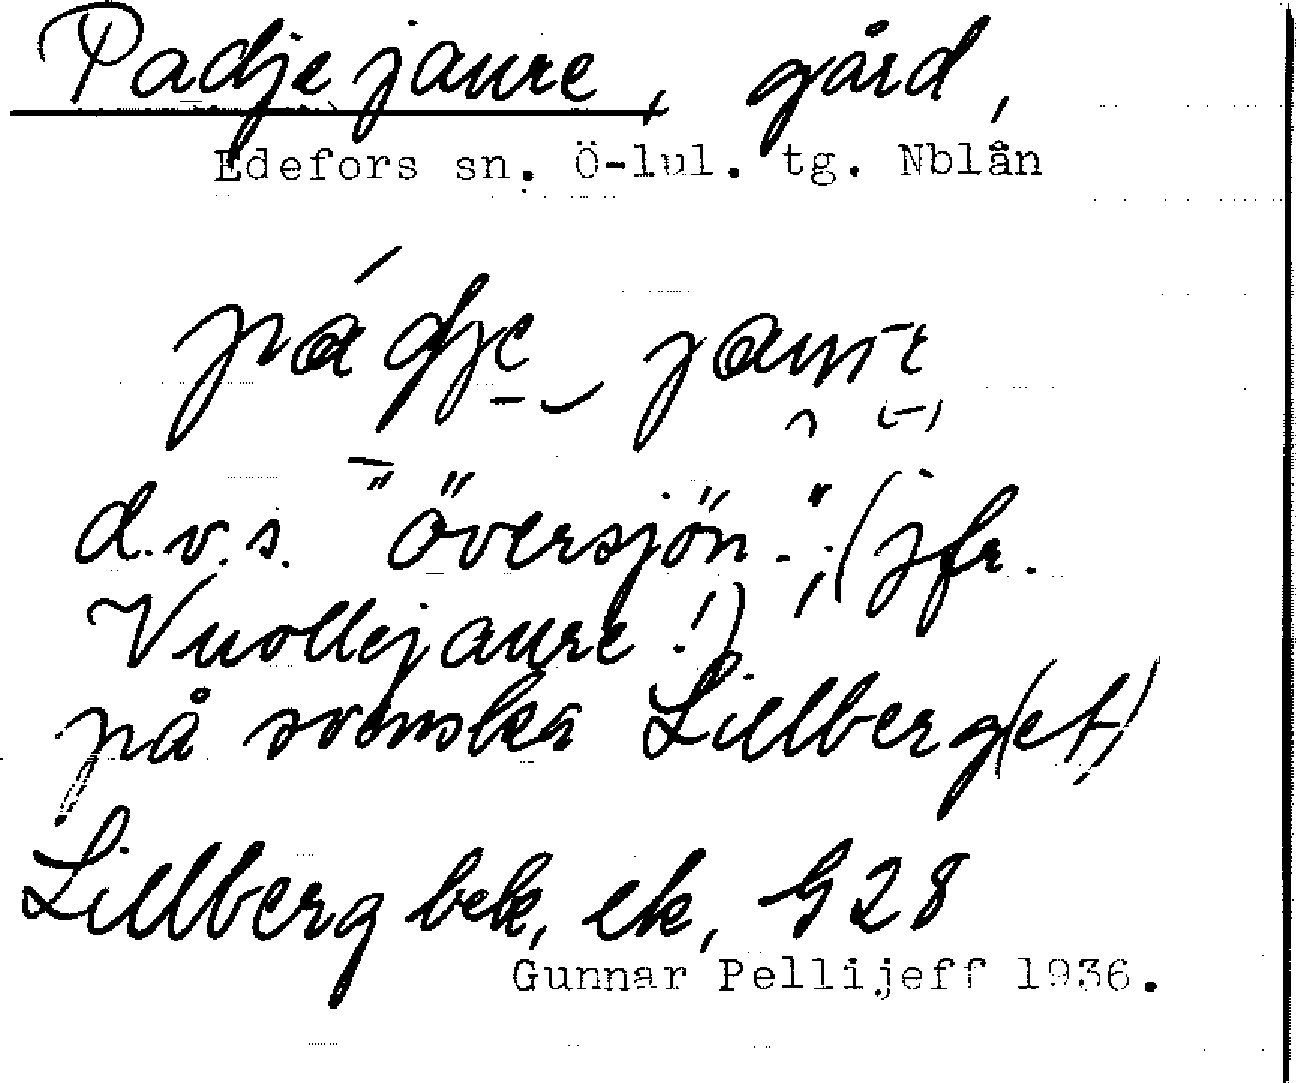 Padjejaure, gård,
Edefors sn. Ö-lul. tg. Nblån
pádje jaure
d.v.s. "översjön", (jfr.
Vuollejaure!)
på svenska Lillberg(et)
Lillberg bek, ek, G 28
Gunnar Pellijeff 1936.